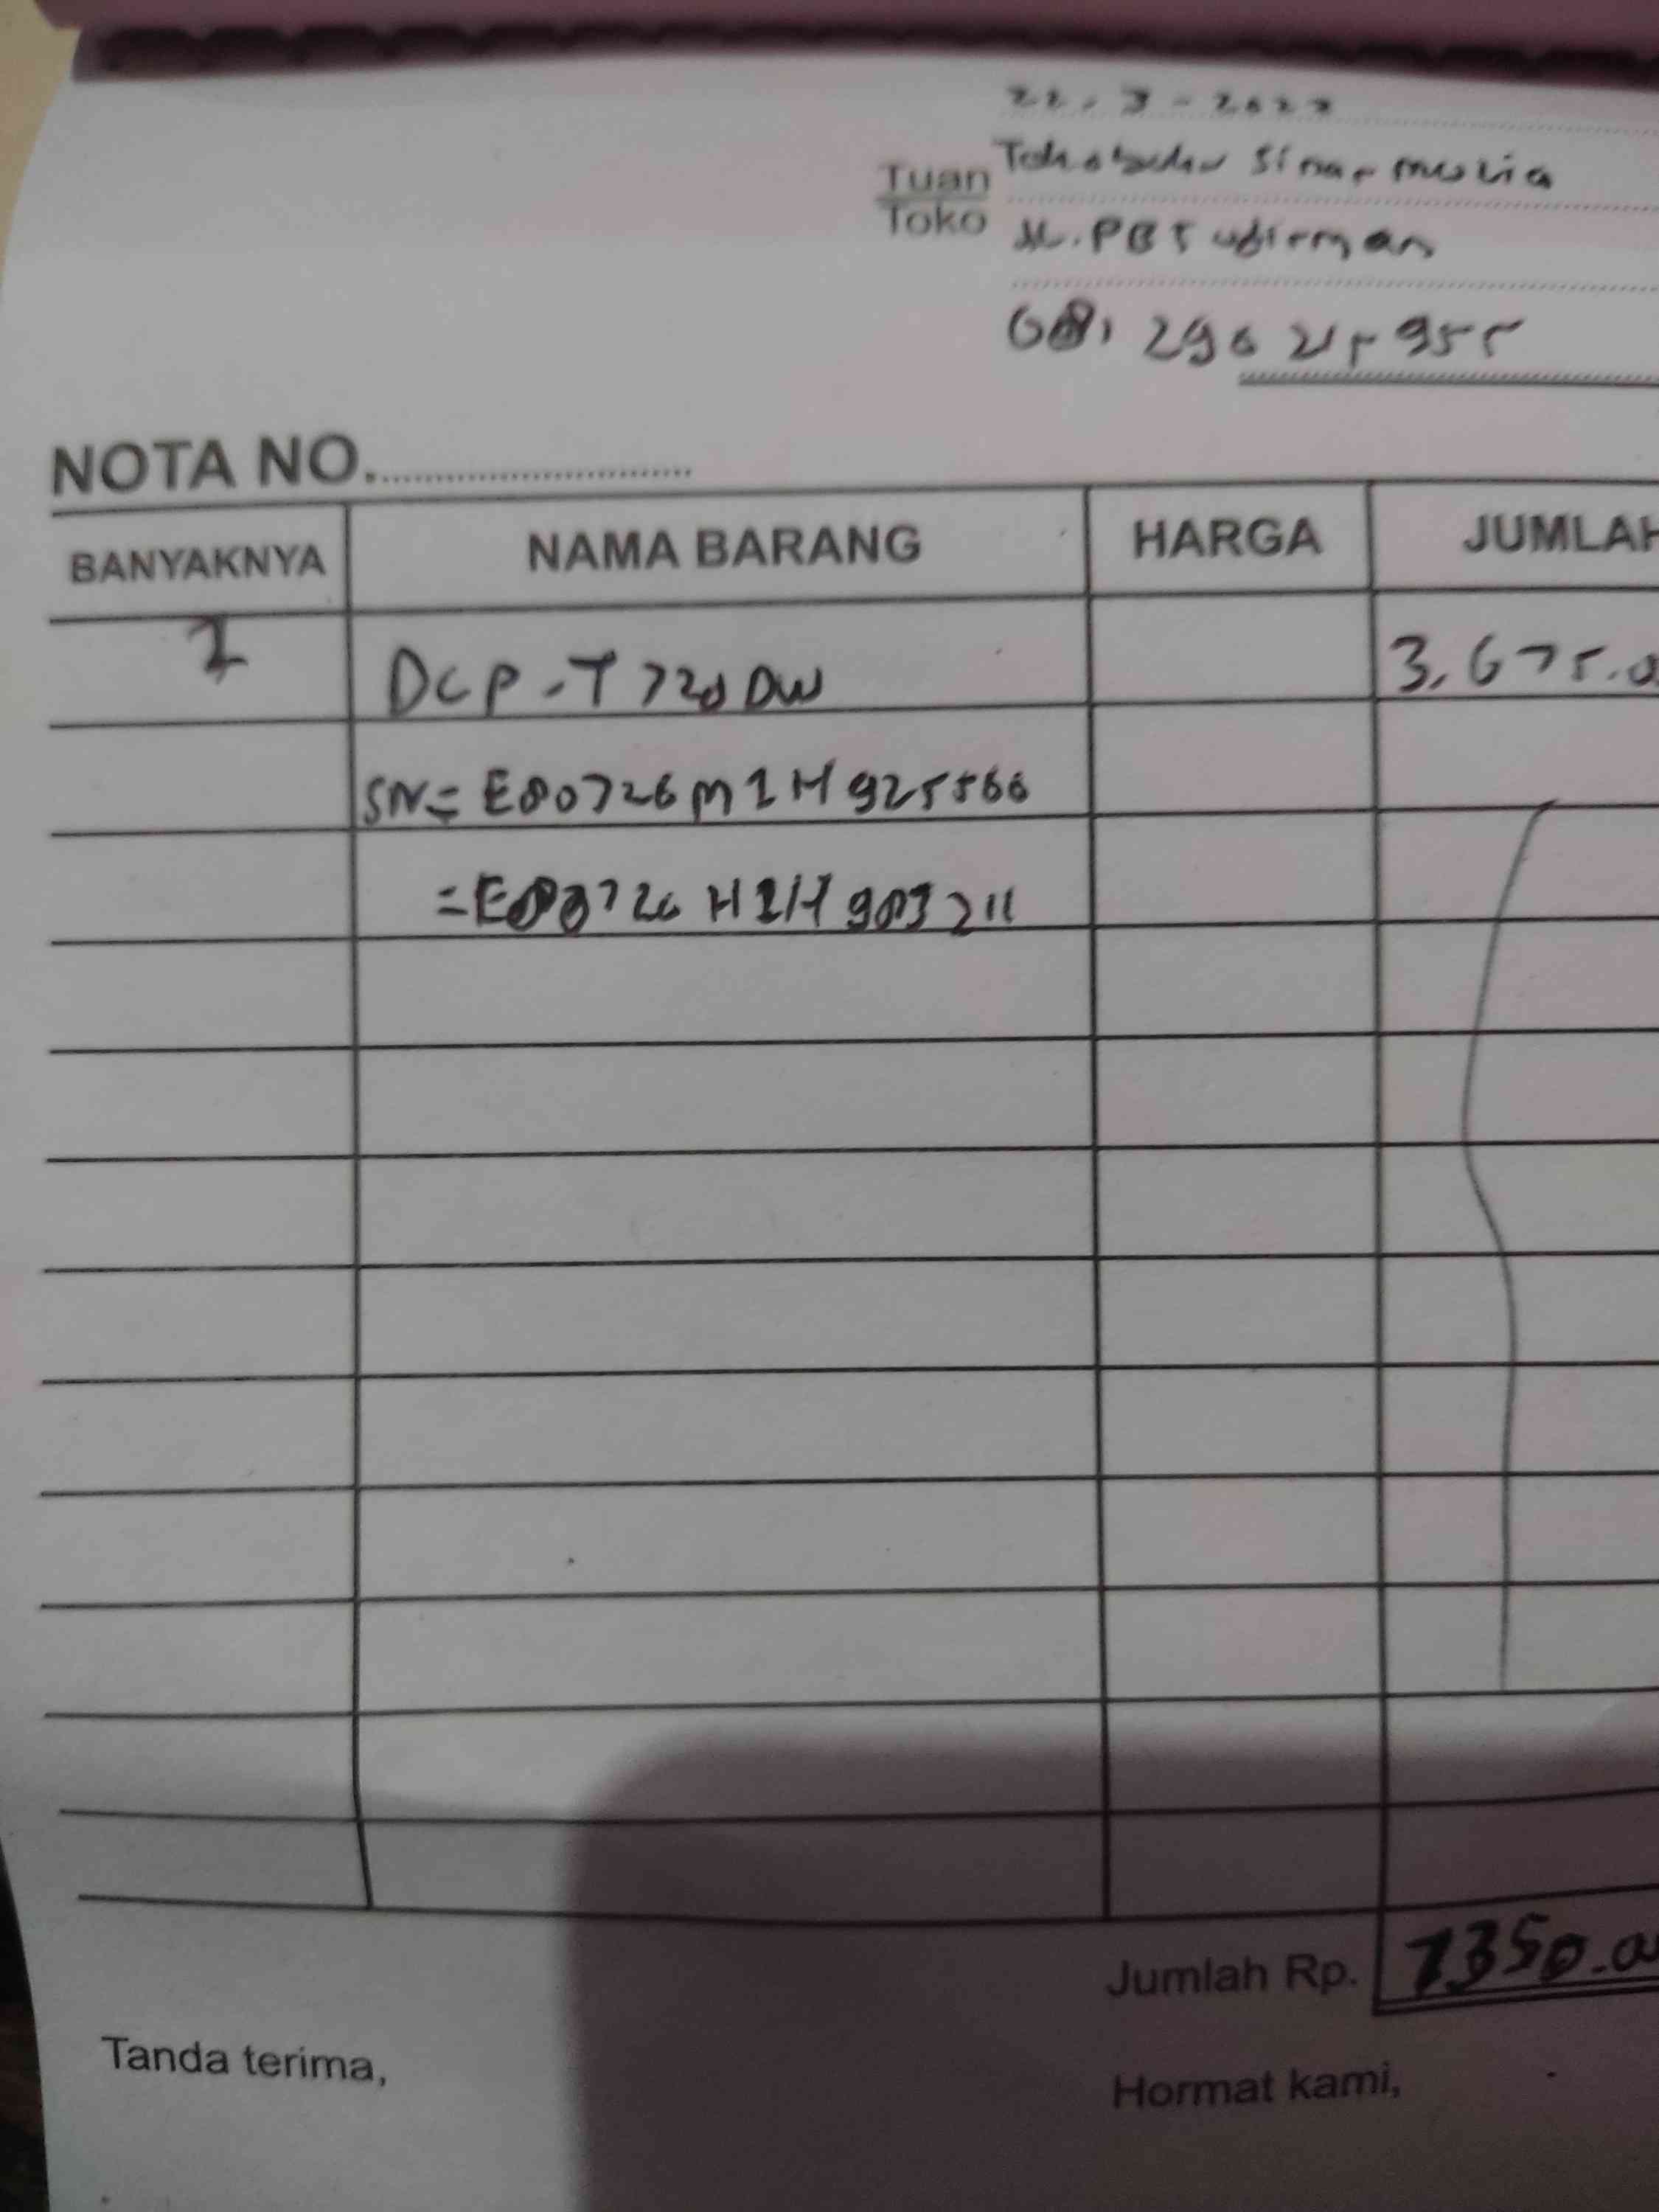 22-3-2022
Tuan
Toko
Sinar mulia
JL. PB Sudirman
NOTA NO.
BANYAKNYA NAMA BARANG HARGA JUMLAH
2 DCP-T720DW 3.675.0
SN= E80726M1H925566
Jumlah Rp. 7350.00
Tanda terima,
Hormat kami,